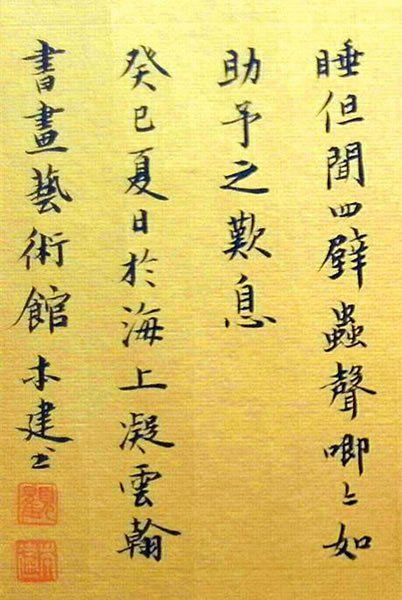 睡但聞四壁蟲聲唧〻如
助予之歎息
癸巳夏日於海上凝雲翰
書畫藝術館 木建书